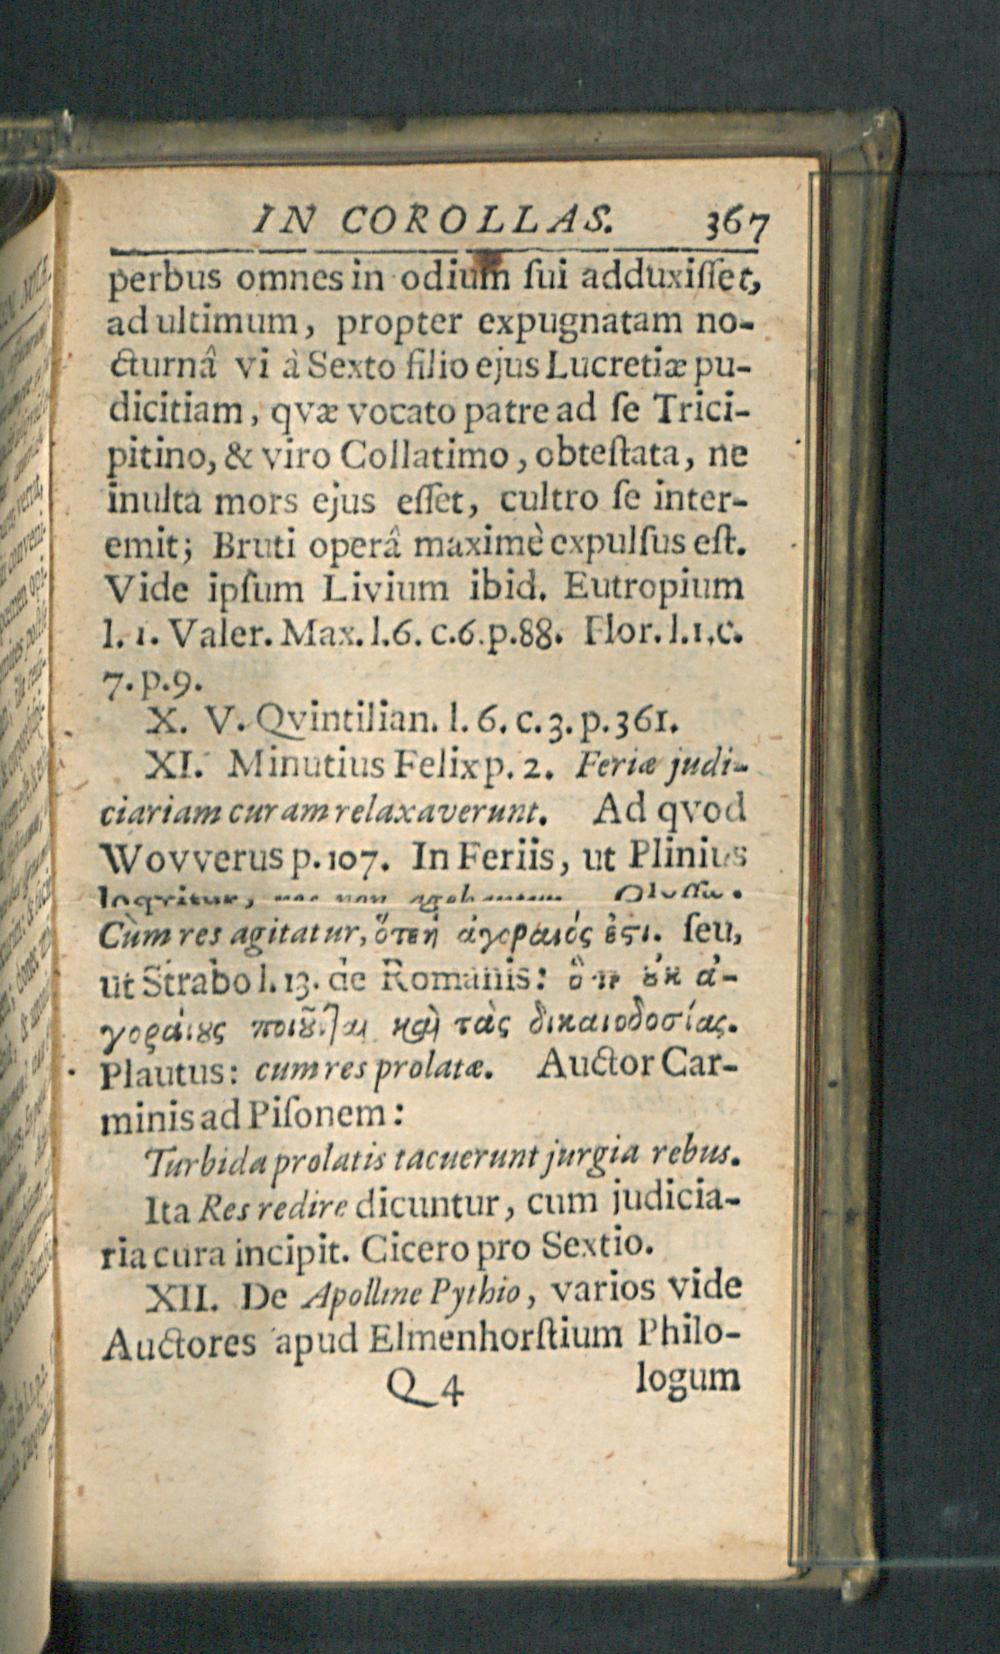 IN COROLLAS. 367
perbus omnes in odium ſui adduxiſſet,
ad ultimum, propter expugnatam no-
cturnâ vi à Sexto filio ejus Lucretiæ pu-
dicitiam, qvæ vocato patre ad ſe Trici-
pitino, & viro Collatimo, obteſtata, ne
inulta mors ejus eſſet, cultro ſe inter-
emit; Bruti operâ maximè expulſus eſt.
Vide ipſum Livium ibid. Eutropium
l. 1. Valer. Max. l. 6. c. 6. p. 88. Flor. l. 1. c.
7. p. 9.
X. V. Qvintilian. l. 6. c. 3. p. 361.
XI. Minutius Felix p. 2. Feriæ judi-
ciariam curam relaxaverunt. Ad qvod
Wovverus p. 107. In Feriis, ut Plinius
loqvitur, res non agebantur.
Cùm res agitatur, ἀγοραιός ἐστι. ſeu,
ut Strabo l. 13. de Romanis: ἐκ ἀ-
γοραίους ποιοῦνται καὶ τὰς δικαιοδοσίας.
Plautus: cum res prolatæ. Auctor Car-
minis ad Piſonem:
Turbida prolatis tacuerunt jurgia rebus.
Ita Res redire dicuntur, cum judicia-
ria cura incipit. Cicero pro Sextio.
XII. De Apolline Pythio, varios vide
Auctores apud Elmenhorſtium Philo-
Q 4 logum